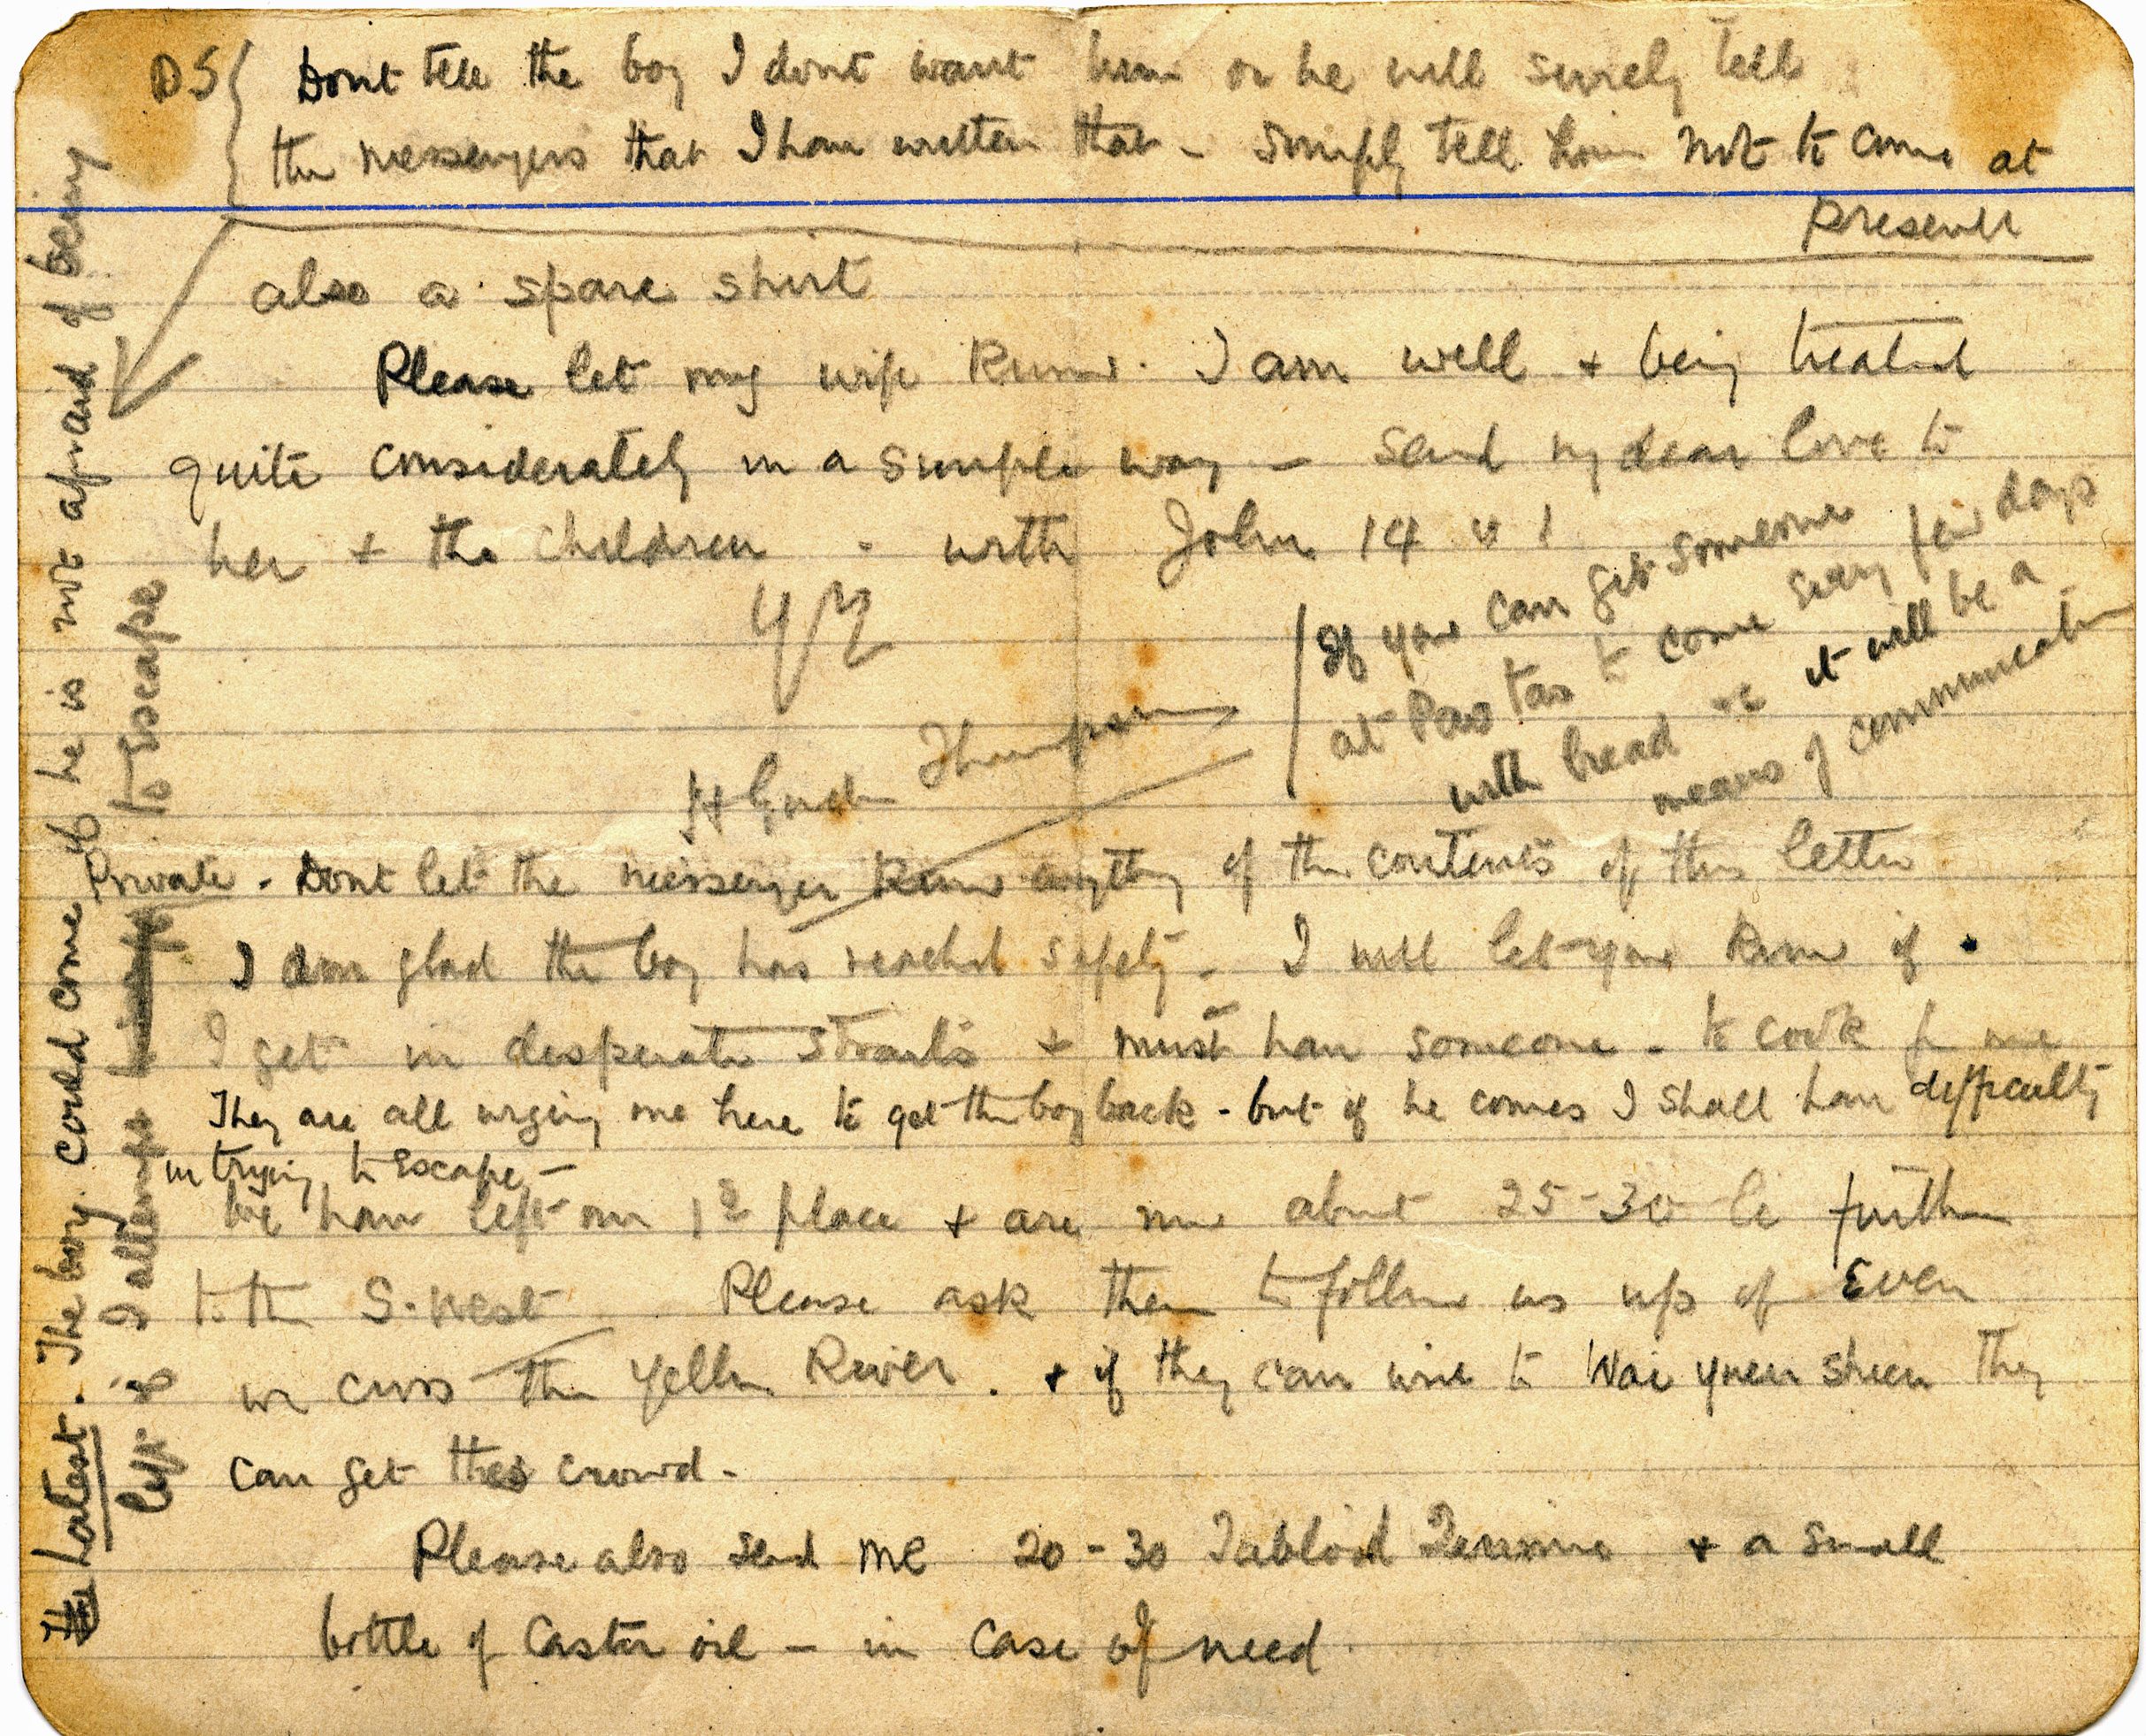 DS { Dont tell the boy I dont want him or he will surely tell
the messengers that I have written that - Simply tell him not to come at
present
also a spare shirt
Please let my wife know. I am well + being treated
quite considerately in a simple way - Send my dear love to
her + the children - with John 14 v 1
H Gordon Thompson
If you can get someone
at Pao Tao to come every few days
with bread etc it will be a
means of communication
Private - Dont let the messenger know anything of the contents of this letter
I am glad the boy has reached safely - I will let you know if
I get in desperate straits + must have someone - to cook for me
They are all urging me here to get the boy back - but if he comes I shall have difficulty
in trying to Escape -
We have left our 1st place + are now about 25-30 li further
to the S. West Please ask them to follow us up if Even
we cross the Yellow River. + if they can wire to Wai yuen shien they
can get this crowd -
Please also send me 20 - 30 Tabloid + a small
bottle of Castor oil - in case of need
The Latest. The boy could come if he is not afraid of being
left if I attempt to Escape